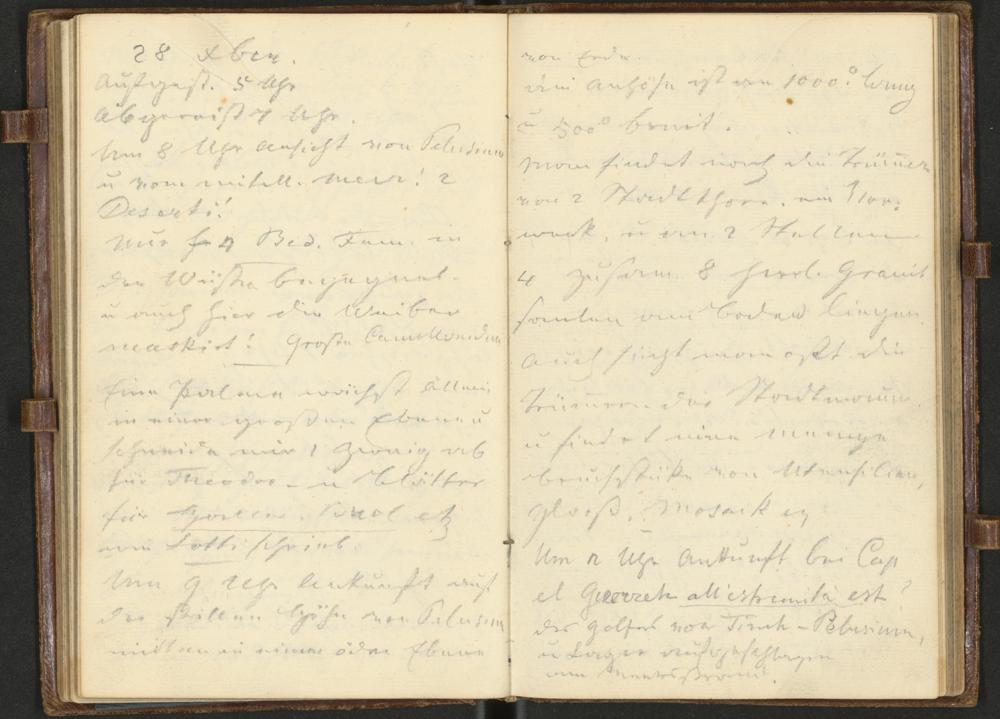 28 xber.
Aufgest. 5 Uhr
abgereist 7 Uhr.
Um 8 Uhr Ansicht von Pelusium
u vom mitell. Meer! 2
Deserti!
Nur 4 Bed. Fam. in
der Wüste begegnet.
u auch hier die Weiber
maskirt! Große
Eine Palme wächst allein
in einer großen Ebene u
schneide mir 1 Zweig ab
für Theodor u Blätter
für etz
Lotti schrieb.
Um 9 Uhr Ankunft auf
der Höhe von Pelusium
mitten in einer öden Ebene
von Erde.
die Anhöhe ist an 1000° lang
u 500° breit.
Man findet noch die Trümmer
von 2 Stadtthore, ein
werk, u an 2 Stellen
4 zusam. 8 herrl. Granit
Säulen am Boden liegen
Auch sieht man oft die
Trümmer der Stadtmauer
u findet eine Menge
Bruchstüke von Utensilien,
Glas, Mosaik
Um 2 Uhr Ankunft bei Cap
el all'estremità est
des Golfes von Tineh - Pelusium,
u Lager aufgeschlagen
am Meeresstrand.